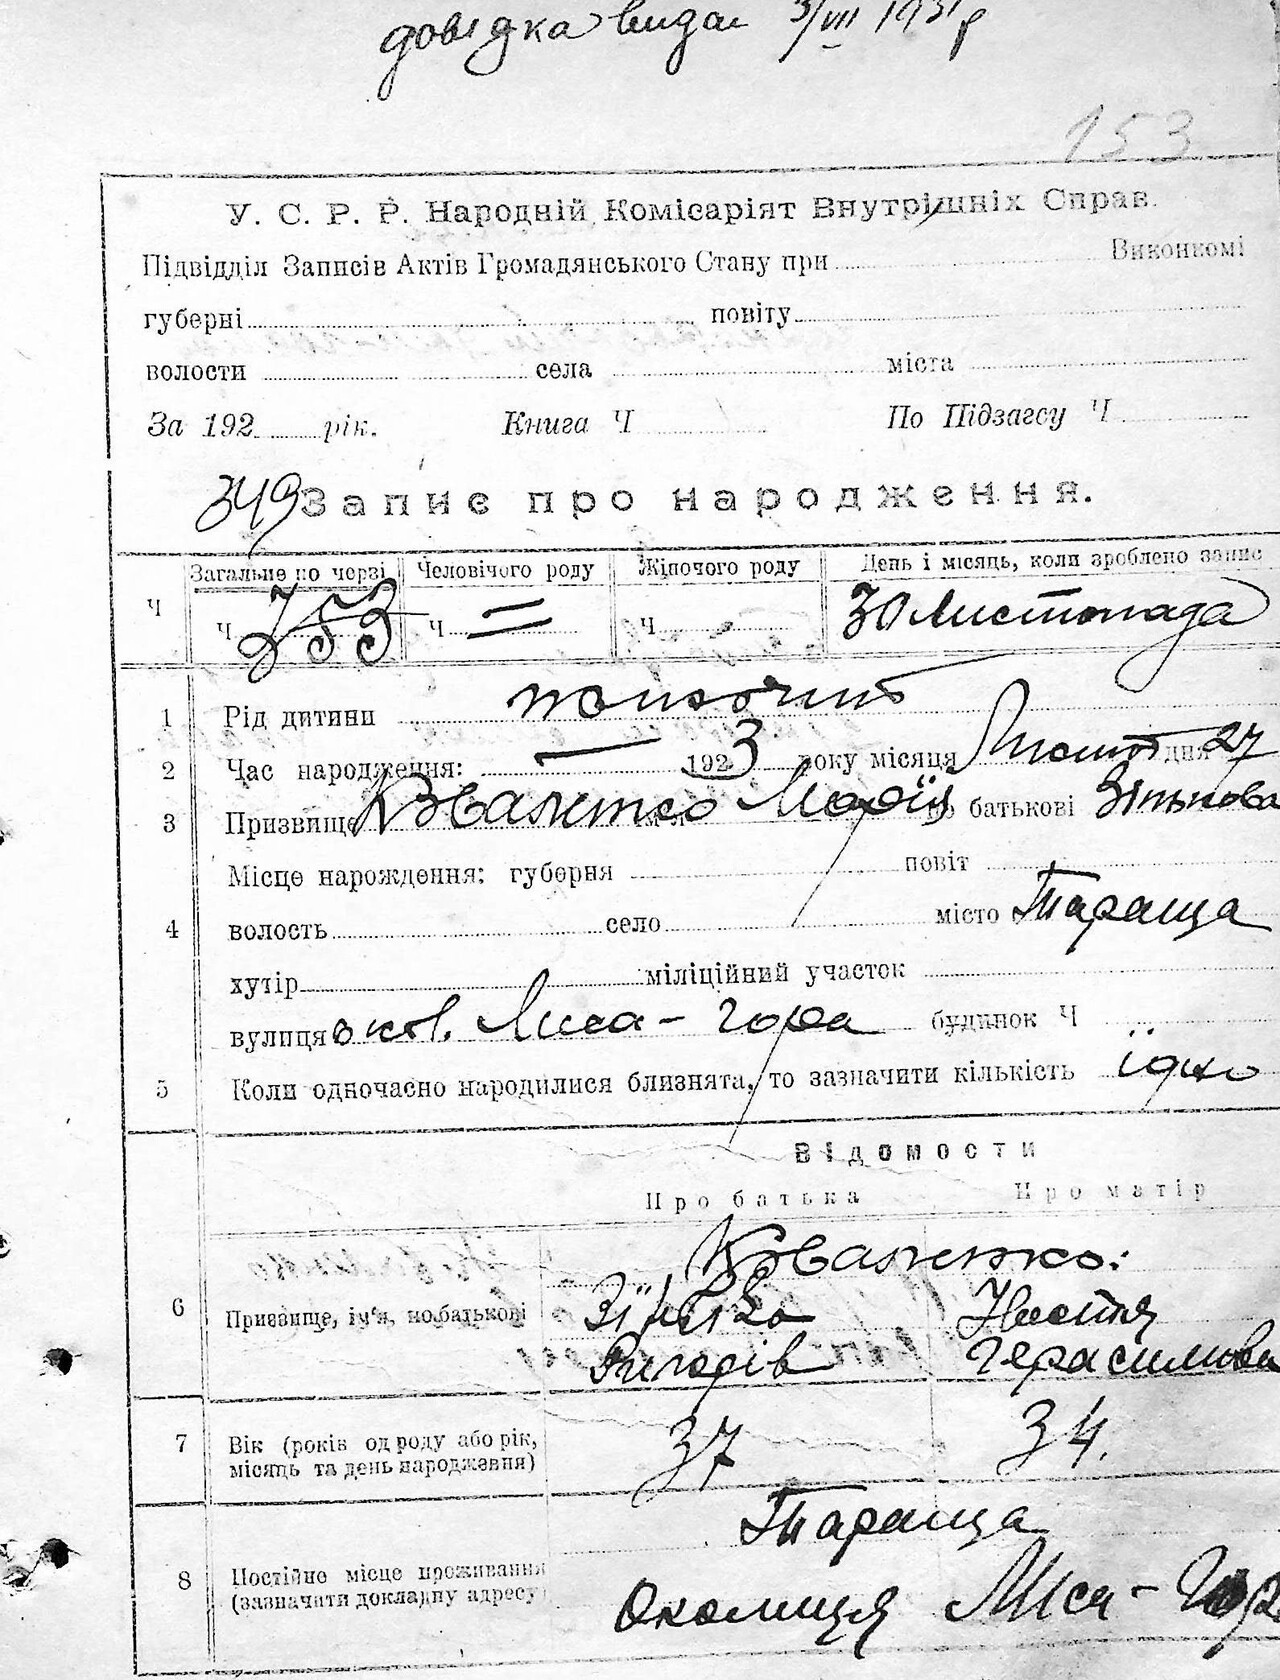 довідка видан 3/VII 1931 р
153
У. С. Р. Р. Народній Комісаріят Внутрішніх Справ.
Підвідділ Записів Актів Громадянського Стану при Виконкомі
губерні повіту
волости села міста
За 192 рік. Книга Ч По Підзагсу Ч
349 Запис про народження.
Загальне по черзі Человічого роду Жіночого роду День і місяць, коли зроблено запис
Ч Ч 353 Ч = Ч 30 Листопада
1 Рід дитини жиночий
2 Час народження: — 1923 року місяця Листоп дня 27
3 Призвище Кваженко Марія по батькові Зінькова
Місце народження: губерня повіт
4 волость село місто Тараща
хутір міліційний участок
вулиця окол. Лиса-гора будинок Ч
5 Коли одночасно народилися близнята, то зазначити кількість їдно
Відомости
Про батька Про матір
Кваженко:
6 Призвище, ім'я, по батькові Зінько Настя
Григорів Герасимова
7 Вік (років од роду або рік, 37 34.
місяць та день народження)
Тараща
8 Постійне місце проживання
(зазначити докладну адресу) Околиця Лиса-Гора